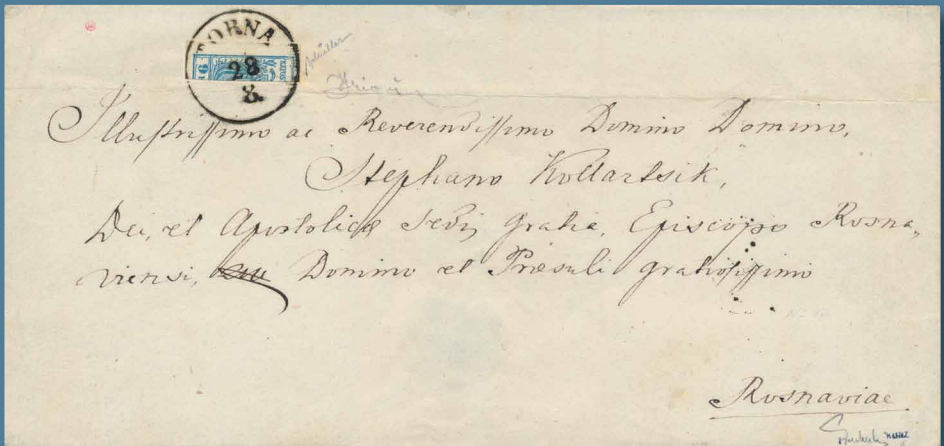 TORNA
28
8.
Illustrissimo ac Reverendissimo Domino Domino,
Stephano Kollartsik,
Dei, et Apostolicæ Sedis gratia, Episcopo Rosna„
viensi, Domino et Præsuli gratiosissimo
Rosnaviae